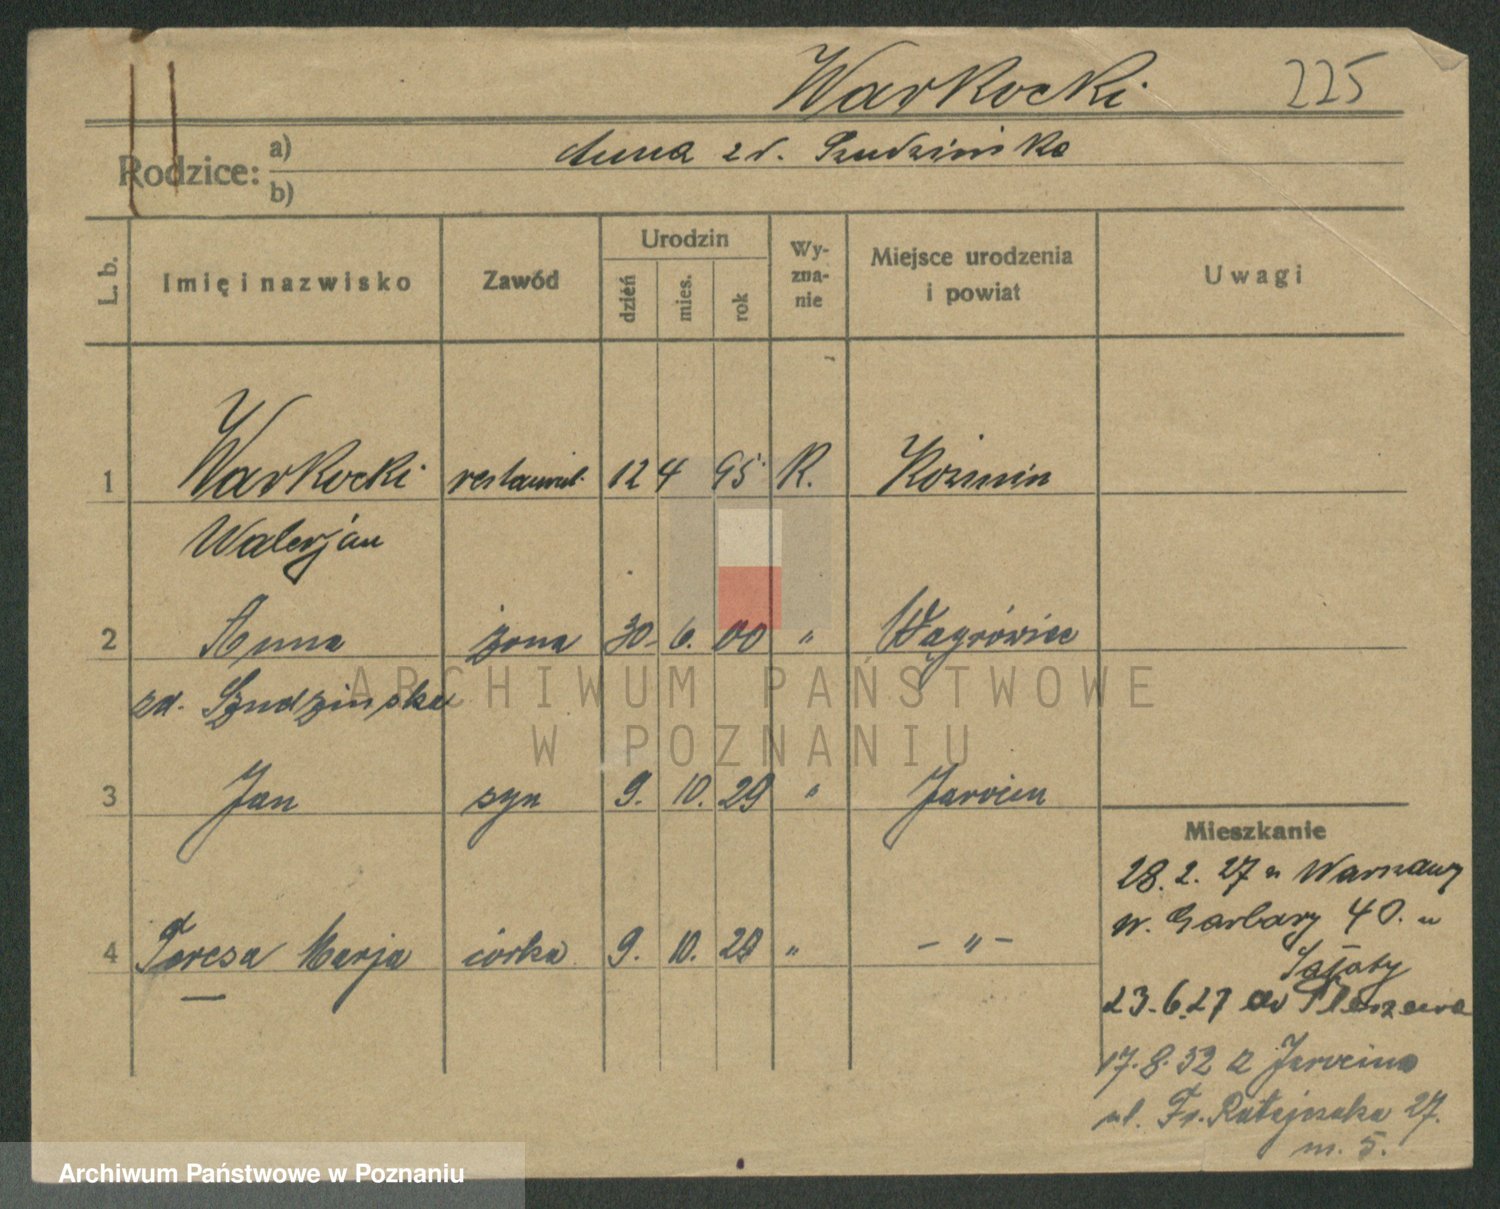 Warkocki 225
Rodzice: a) Anna zd. Szudzińska
b)
L. b. Imię i nazwisko Zawód Urodzin dzień mies. rok Wyznanie Miejsce urodzenia i powiat Uwagi
1 Warkocki restaurat. 12 4 95 R. Koźmin
Walerjan
2 Anna żona 30. 6. 00 " Wągrówiec
zd. Szudzińska
3 Jan syn 9. 10. 29 " Jarocin
Mieszkanie
28. 2. 27 z Warszawy
W. Garbary 40. u
4 Teresa Marja córka 9. 10. 29 " – " –
23.6.27 do Pleszewa
17.8.32 z Jarocina
ul. Fr. Ratajczaka 27.
m. 5.
ARCHIWUM PAŃSTWOWE
W POZNANIU
Archiwum Państwowe w Poznaniu